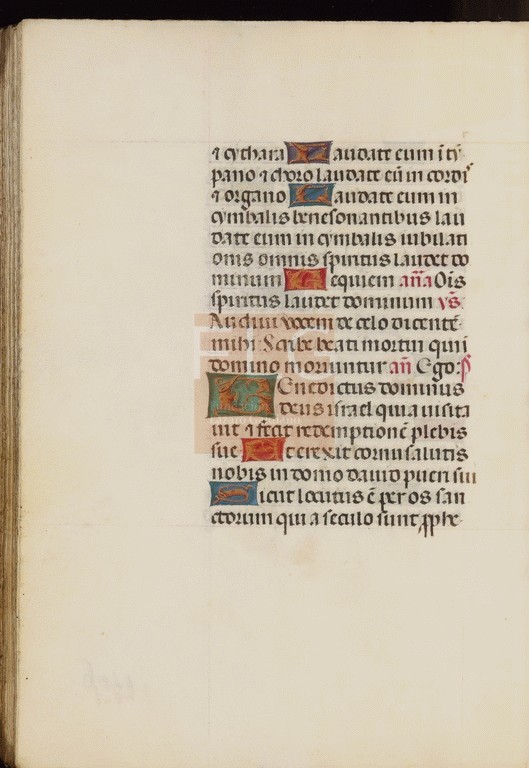 ⁊ cythara Laudate eum ī tȳ
pano ⁊ choro laudate eū in cordis
⁊ organo Laudate eum in
cymbalis benesonantibus lau
date eum in cymbalis iubilati
onis omnis spiritus laudet do
minum Requiem añā Oīs
spiritus laudet dominum vs̄.
Audiui vocem de celo dicentē
mihi Scribe beati mortui qui i
domino moriuntur añ Ego: ps
Benedictus dominus
deus israel quia uisita
uit ⁊ fecit redemptionē plebis
sue Et erexit cornu salutis
nobis in domo dauid pueri sui
Sicut locutus ē per os san
ctorum qui a seculo sunt ꝓphe